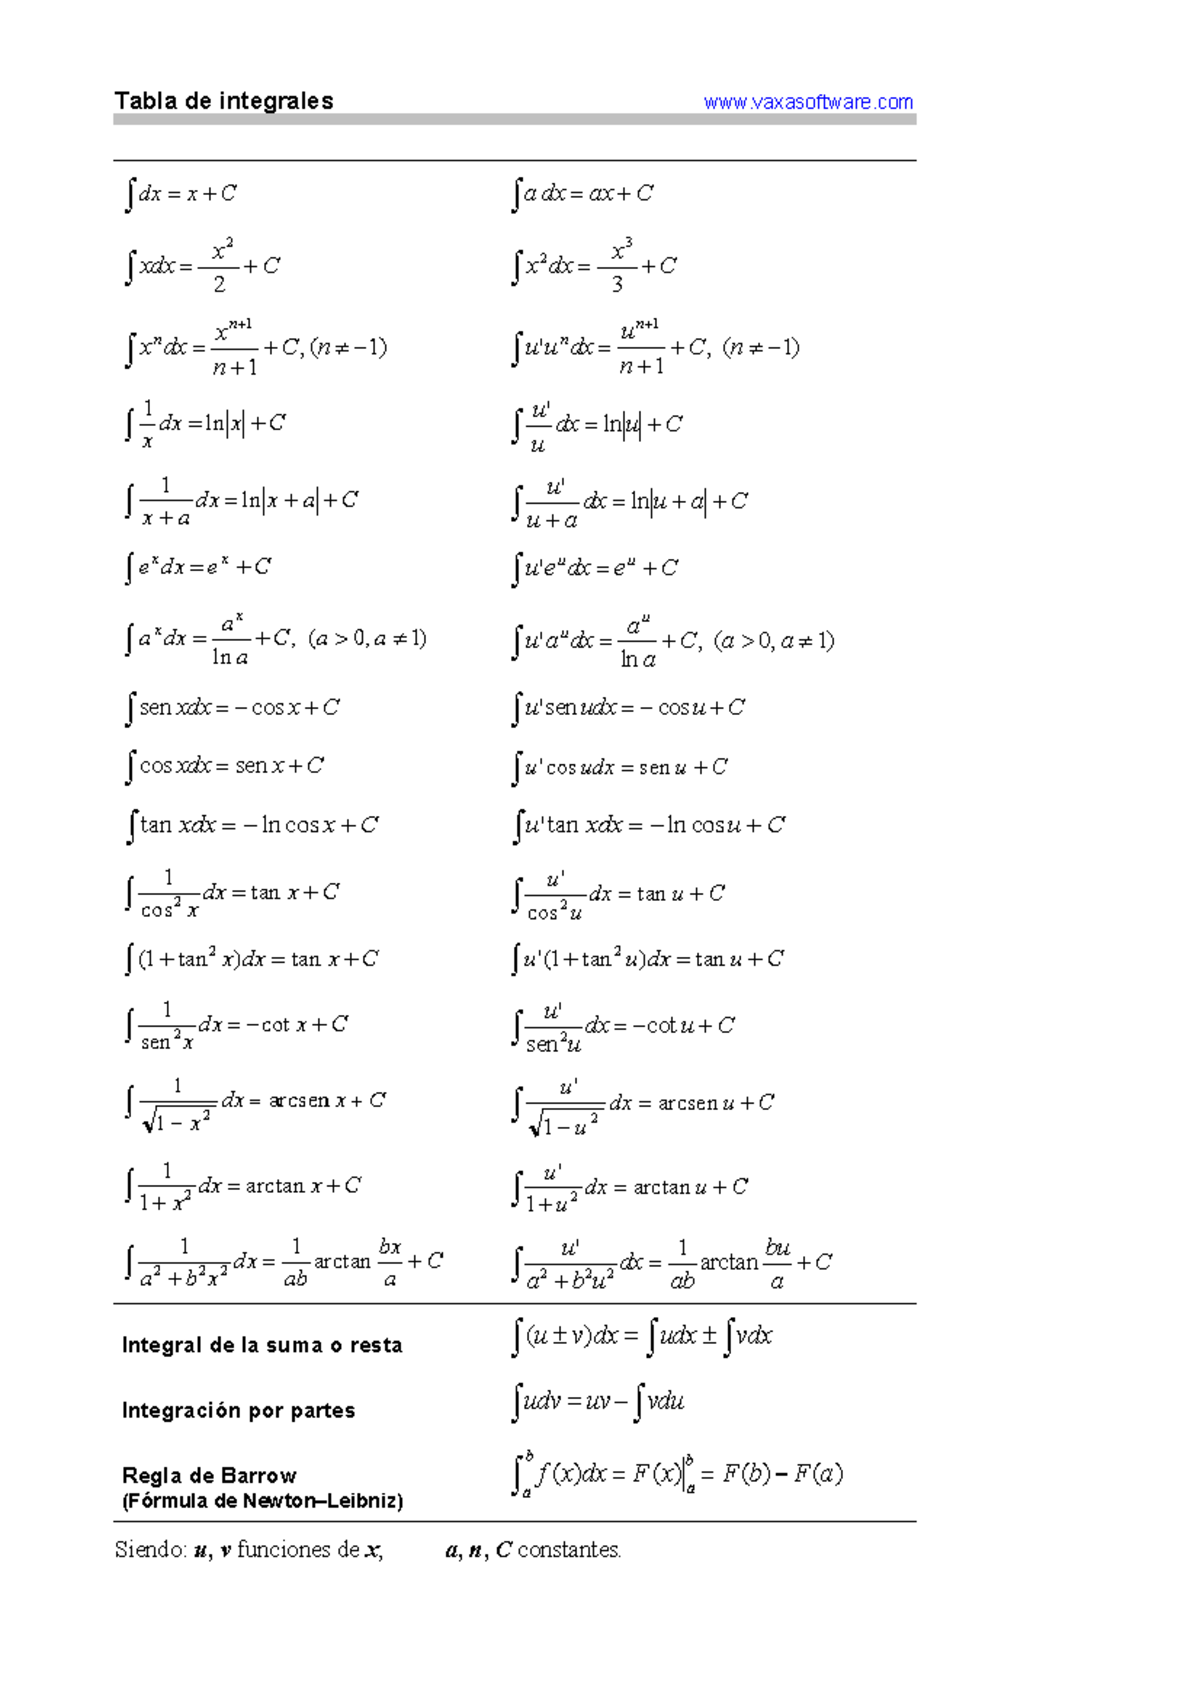 Tabla de integrales www.vaxasoftware.com
∫dx = x + C ∫a dx = ax + C
∫xdx = x²/2 + C ∫x²dx = x³/3 + C
∫xⁿdx = xⁿ⁺¹/(n+1) + C, (n ≠ −1) ∫u'uⁿdx = uⁿ⁺¹/(n+1) + C, (n ≠ −1)
∫1/x dx = ln|x| + C ∫u'/u dx = ln|u| + C
∫1/(x + a) dx = ln|x + a| + C ∫u'/(u + a) dx = ln|u + a| + C
∫eˣdx = eˣ + C ∫u'eᵘdx = eᵘ + C
∫aˣdx = aˣ/ln a + C, (a > 0, a ≠ 1) ∫u'aᵘdx = aᵘ/ln a + C, (a > 0, a ≠ 1)
∫sen xdx = − cos x + C ∫u'sen udx = − cos u + C
∫cos xdx = sen x + C ∫u'cos udx = sen u + C
∫tan xdx = − ln cos x + C ∫u'tan xdx = − ln cos u + C
∫1/cos² x dx = tan x + C ∫u'/cos² u dx = tan u + C
∫(1 + tan² x)dx = tan x + C ∫u'(1 + tan² u)dx = tan u + C
∫1/sen² x dx = −cot x + C ∫u'/sen² u dx = −cot u + C
∫1/√(1 − x²) dx = arcsen x + C ∫u'/√(1 − u²) dx = arcsen u + C
∫1/(1 + x²) dx = arctan x + C ∫u'/(1 + u²) dx = arctan u + C
∫1/(a² + b²x²) dx = 1/ab arctan bx/a + C ∫u'/(a² + b²u²) dx = 1/ab arctan bu/a + C
Integral de la suma o resta ∫(u ± v)dx = ∫udx ± ∫vdx
Integración por partes ∫udv = uv − ∫vdu
Regla de Barrow ∫ₐᵇ f(x)dx = F(x)|ₐᵇ = F(b) − F(a)
(Fórmula de Newton–Leibniz)
Siendo: u, v funciones de x, a, n, C constantes.